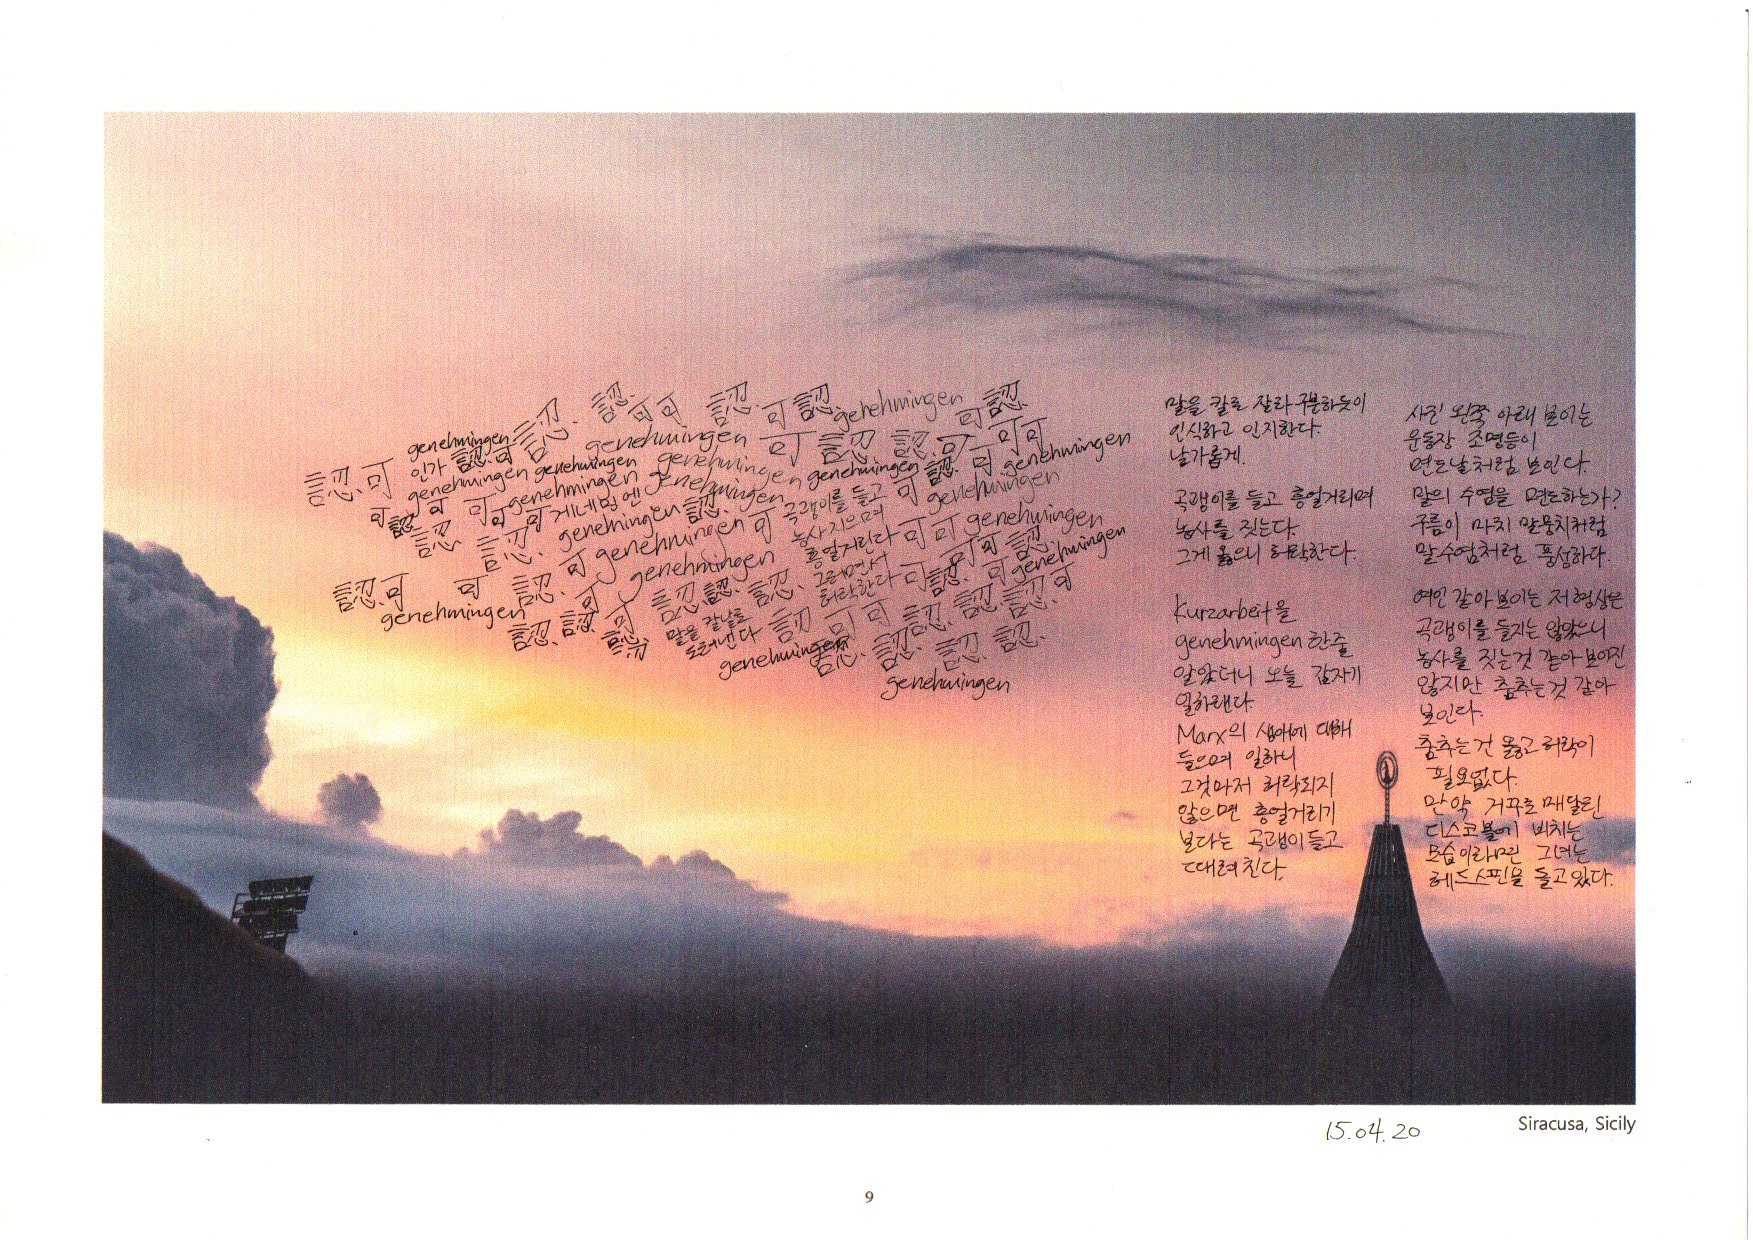 認可 認可可 認可認 genehmingen 可認
genehmingen 認 genehmingen 可 認 認 可 可可 genehmingen
인가 認可 genehmingen genehmingen genehmingen genehmingen 認 可
認可 genehmingen genehmingen genehmingen 可 genehmingen
可認 可可可 게네밍엔 genehmingen 認
認 認 genehmingen genehmingen 可 可可 genehmingen
곡괭이를 들고
농사지으며
흥얼거린다
그러면서
허락한다
認可 可 認可 genehmingen 認認 認 可認 可 genehmingen
genehmingen 認 認 可 認
말을 칼날로
도려낸다
認 可可 認 認 認 可
genehmingen 認 認 認 認
genehmingen
말을 칼로 잘라 구분하듯이
인식하고 인지한다.
날카롭게.
곡괭이를 들고 흥얼거리며
농사를 짓는다.
그게 옳으니 허락한다.
Kurzarbeit을
genehmingen 한줄
알았더니 오늘 갑자기
일하랜다.
Marx의 생애에 대해
들으며 일하니
그것마저 허락되지
않으면 흥얼거리기
보다는 곡괭이 들고
때려친다.
사진 왼쪽 아래 보이는
운동장 조명등이
면도날처럼 보인다.
말의 수염을 면도하는가?
구름이 마치 말뭉치처럼
말수염처럼 풍성하다.
여인 같아 보이는 저 형상은
곡괭이를 들지는 않았으니
농사를 짓는것 같아 보이진
않지만 춤추는것 같아
보인다.
춤추는건 옳고 허락이
필요없다.
만약 거꾸로 매달린
디스코볼에 비치는
모습이라면 그녀는
헤드스핀을 돌고있다.
15.04.20
Siracusa, Sicily
9